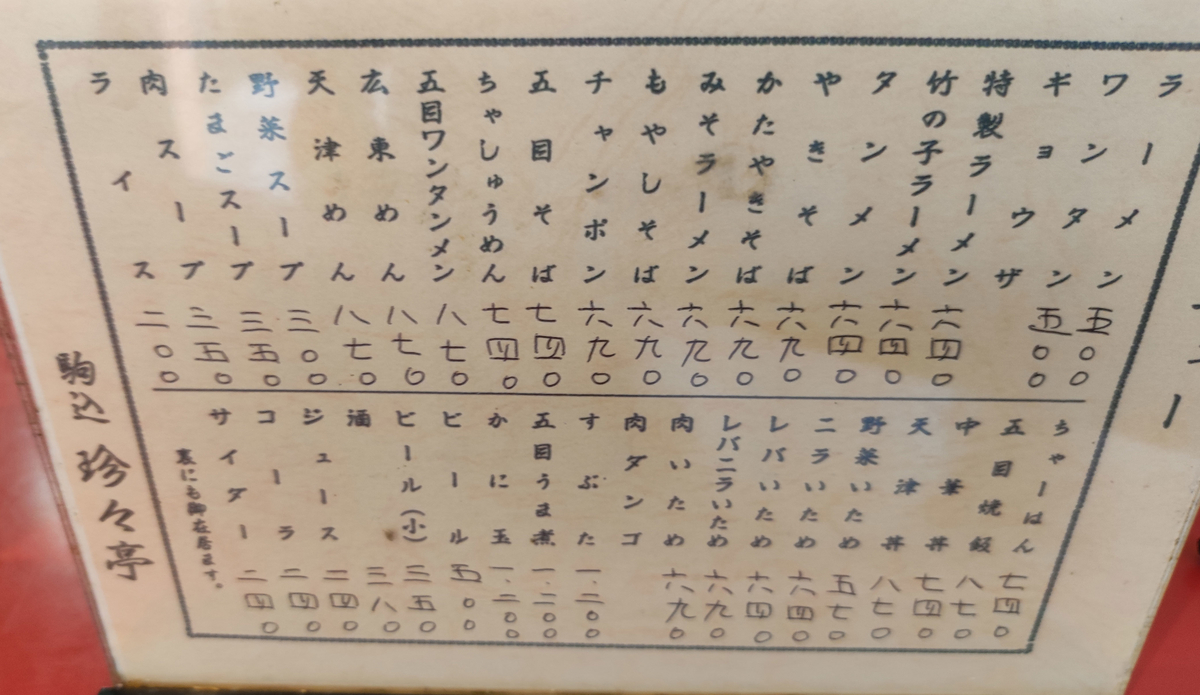 ラーメン 五〇〇
ワンタン 五〇〇
ギョウザ
特製ラーメン 六四〇
竹の子ラーメン 六四〇
タンメン 六四〇
やきそば 六九〇
かたやきそば 六九〇
みそラーメン 六九〇
もやしそば 六九〇
チャンポン 六九〇
五目そば 七四〇
ちゃしゅうめん 七四〇
五目ワンタンメン 八七〇
広東めん 八七〇
天津めん 八七〇
野菜スープ 三〇〇
たまごスープ 三五〇
肉スープ 三五〇
ライス 二〇〇
ちゃーはん 七四〇
五目焼飯 八七〇
中華丼 七四〇
天津丼 八七〇
野菜いため 五七〇
ニラいため 六四〇
レバいため 六四〇
レバニラいため 六九〇
肉いため 六九〇
肉タンゴ
すぶた 一、二〇〇
五目うま煮 一、二〇〇
かに玉 一、二〇〇
ビール 五〇〇
ビール(小) 三五〇
酒 三八〇
ジュース 二四〇
コーラ 二四〇
サイダー 二四〇
裏にも御座居ます。
駒込 珍々亭